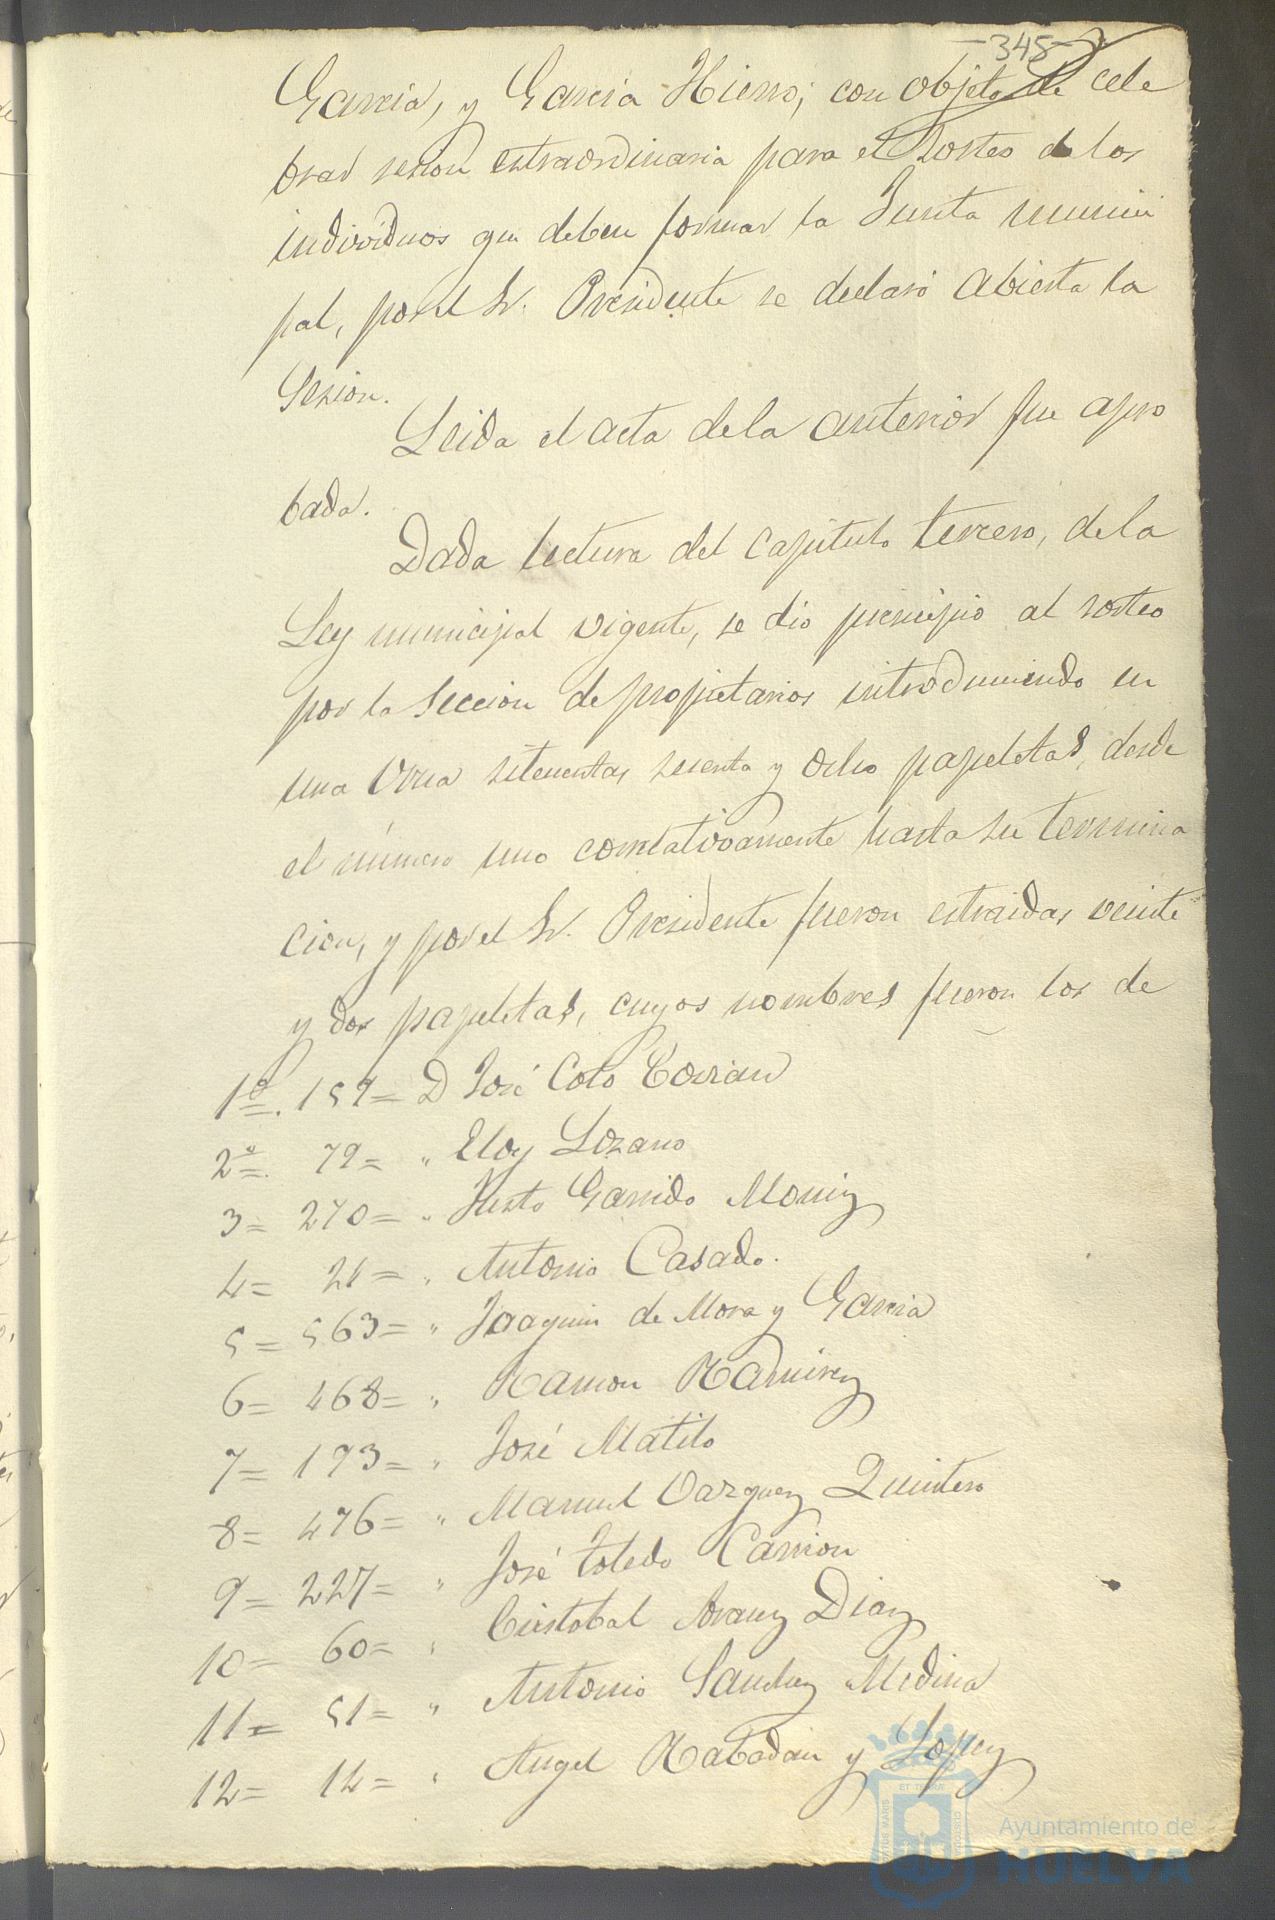 -345-
Garcia, y Garcia Hierro; con objeto de cele
brar sesion extraordinaria para el Sorteo de los
individuos que deben formar la Junta munici
pal, por el Sr. Presidente se declaró abierta la
Sesion.
Leida el acta de la anterior fue apro
bada.
Dada lectura del capitulo tercero, de la
Ley municipal vigente, se dió principio al sorteo
por la Seccion de propietarios introduciendo en
una Urna setecientas sesenta y ocho papeletas, desde
el número uno correlativamente hasta su termina
cion, y por el Sr. Presidente fueron estraidas veinte
y dos papeletas, cuyos nombres fueron los de
1º. 157= D José Coto
2º. 79= " Eloy Lozano
3= 270= " Justo Garrido
4= 21= " Antonio Casado.
5= 563= " Joaquin de Mora y Garcia
6= 468= " Ramon Ramirez
7= 193= " José Matito
8= 476= " Manuel Vazquez Quintero
9= 227= " José Toledo Carrion
10= 60= " Cristobal Diaz
11= 51= " Antonio Sanchez Medina
12= 14= " Angel Rabadan y Lopez
Ayuntamiento de
HUELVA